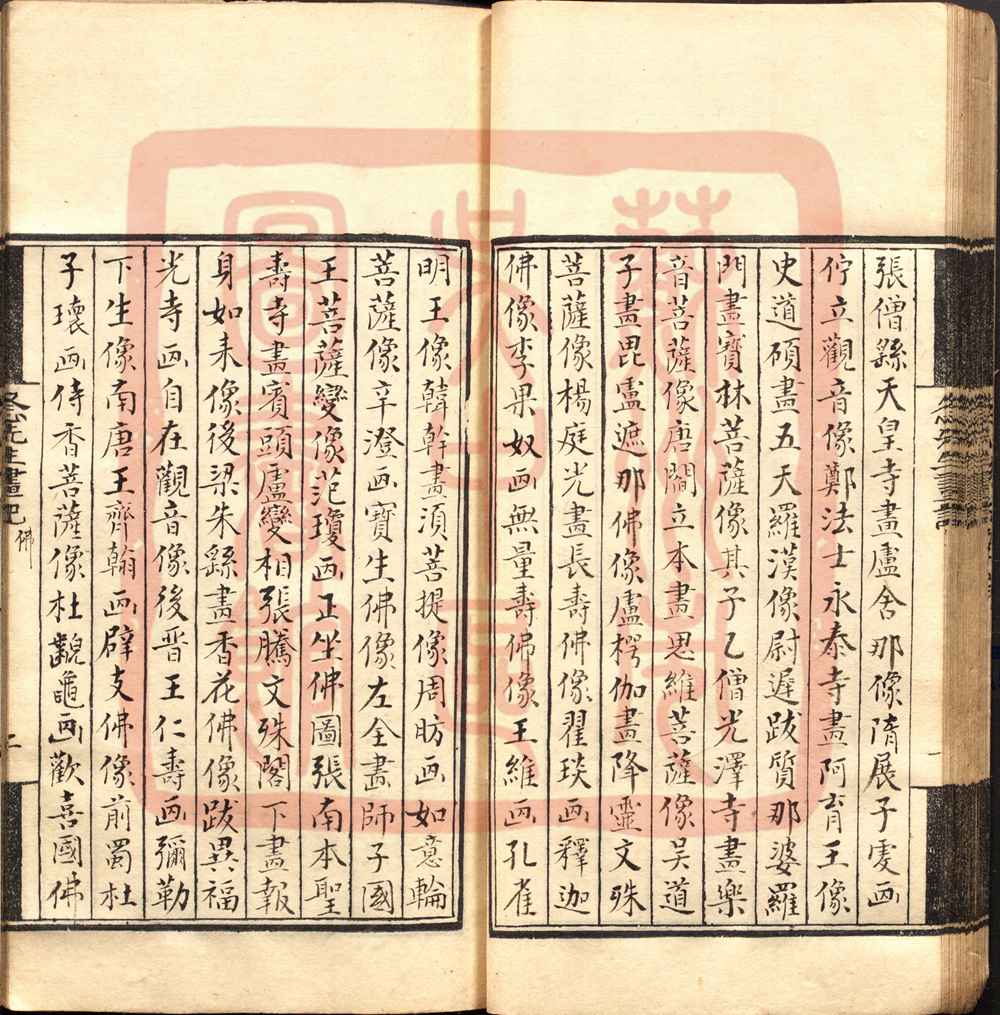 張僧繇天皇寺畫盧舍那像隋展子虔画
佇立觀音像鄭法士永泰寺畫阿育王像
史道碩畫五天羅漢像尉遲跋質那婆羅
門畫寶林菩薩像其子乙僧光澤寺畫樂
音菩薩像唐閻立本畫思維菩薩像吳道
子畫毘盧遮那佛像盧楞伽畫降靈文殊
菩薩像楊庭光畫長壽佛像翟琰画釋迦
佛像李果奴画無量壽佛像王維画孔雀
明王像韓幹畫湏菩提像周昉画如意輪
菩薩像辛澄画寶生佛像左全畫師子國
王菩薩變像范瓊画正坐佛圖張南本聖
壽寺畫賓頭盧變相張騰文殊閣下畫報
身如来像後梁朱繇畫香花佛像跋異福
光寺画自在觀音像後晋王仁壽画彌勒
下生像南唐王齊翰画辟支佛像前蜀杜
子瓌画侍香菩薩像杜齯龜画歡喜國佛
畫記 佛